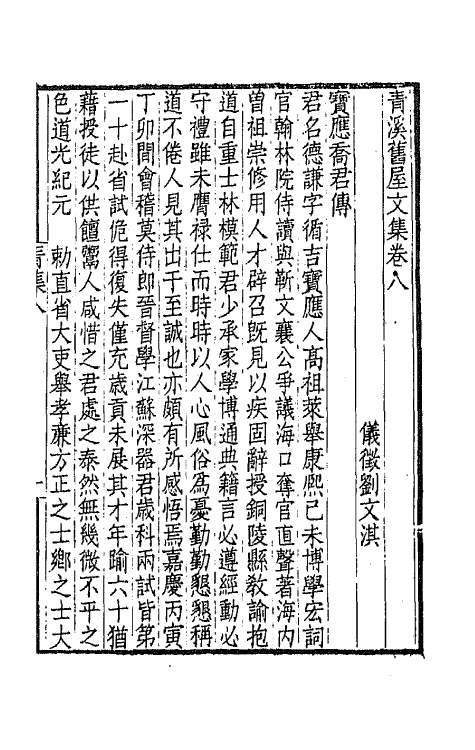 青溪舊屋文集卷八
儀徵劉文淇
寶應喬君傳
君名德謙字循吉寶應人高祖萊舉康熙己未博學宏詞
官翰林院侍讀與靳文襄公爭議海口奪官直聲著海内
曾祖崇修用人才辟召旣見以疾固辭授銅陵縣敎諭抱
道自重士林模範君少承家學博通典籍言必遵經動必
守禮雖未膺祿仕而時時以人心風俗爲憂勤勤懇懇稱
道不倦人見其出于至誠也亦頗有所感悟焉嘉慶丙寅
丁卯閒會稽莫侍郎晉督學江蘇深器君歲科兩試皆第
一十赴省試俛得復失僅充歲貢未展其才年踰六十猶
藉授徒以供饘鬻人咸惜之君處之泰然無幾微不平之
色道光紀元 勅直省大吏舉孝亷方正之士鄉之士大
青集八
一